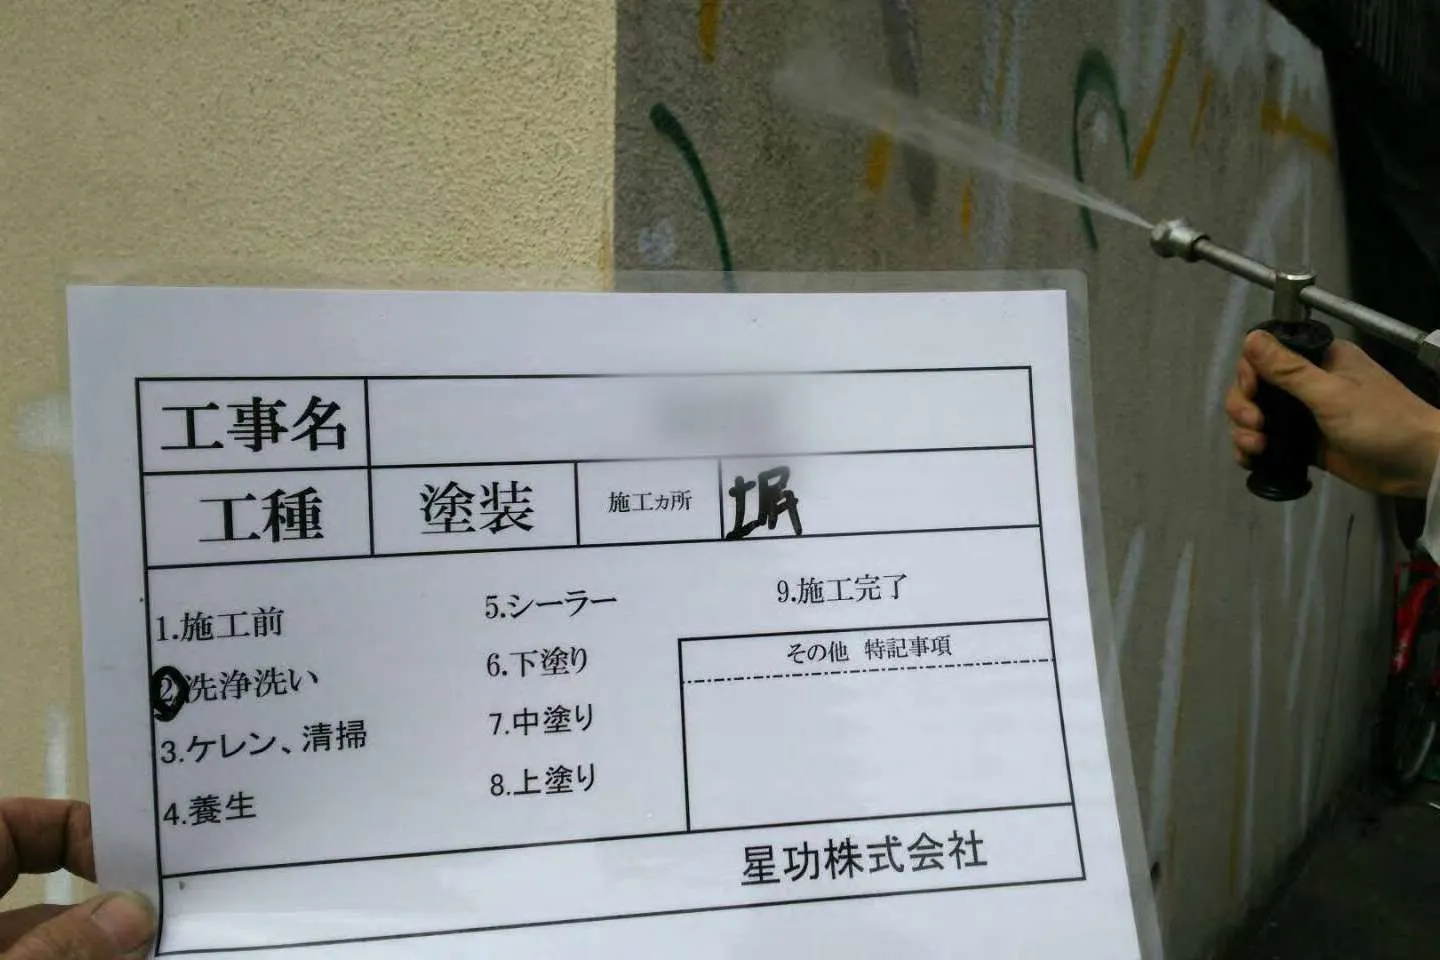 工事名
工種 塗装 施工カ所 塀
1.施工前
2.洗浄洗い
3.ケレン、清掃
4.養生
5.シーラー
6.下塗り
7.中塗り
8.上塗り
9.施工完了
その他 特記事項
星功株式会社